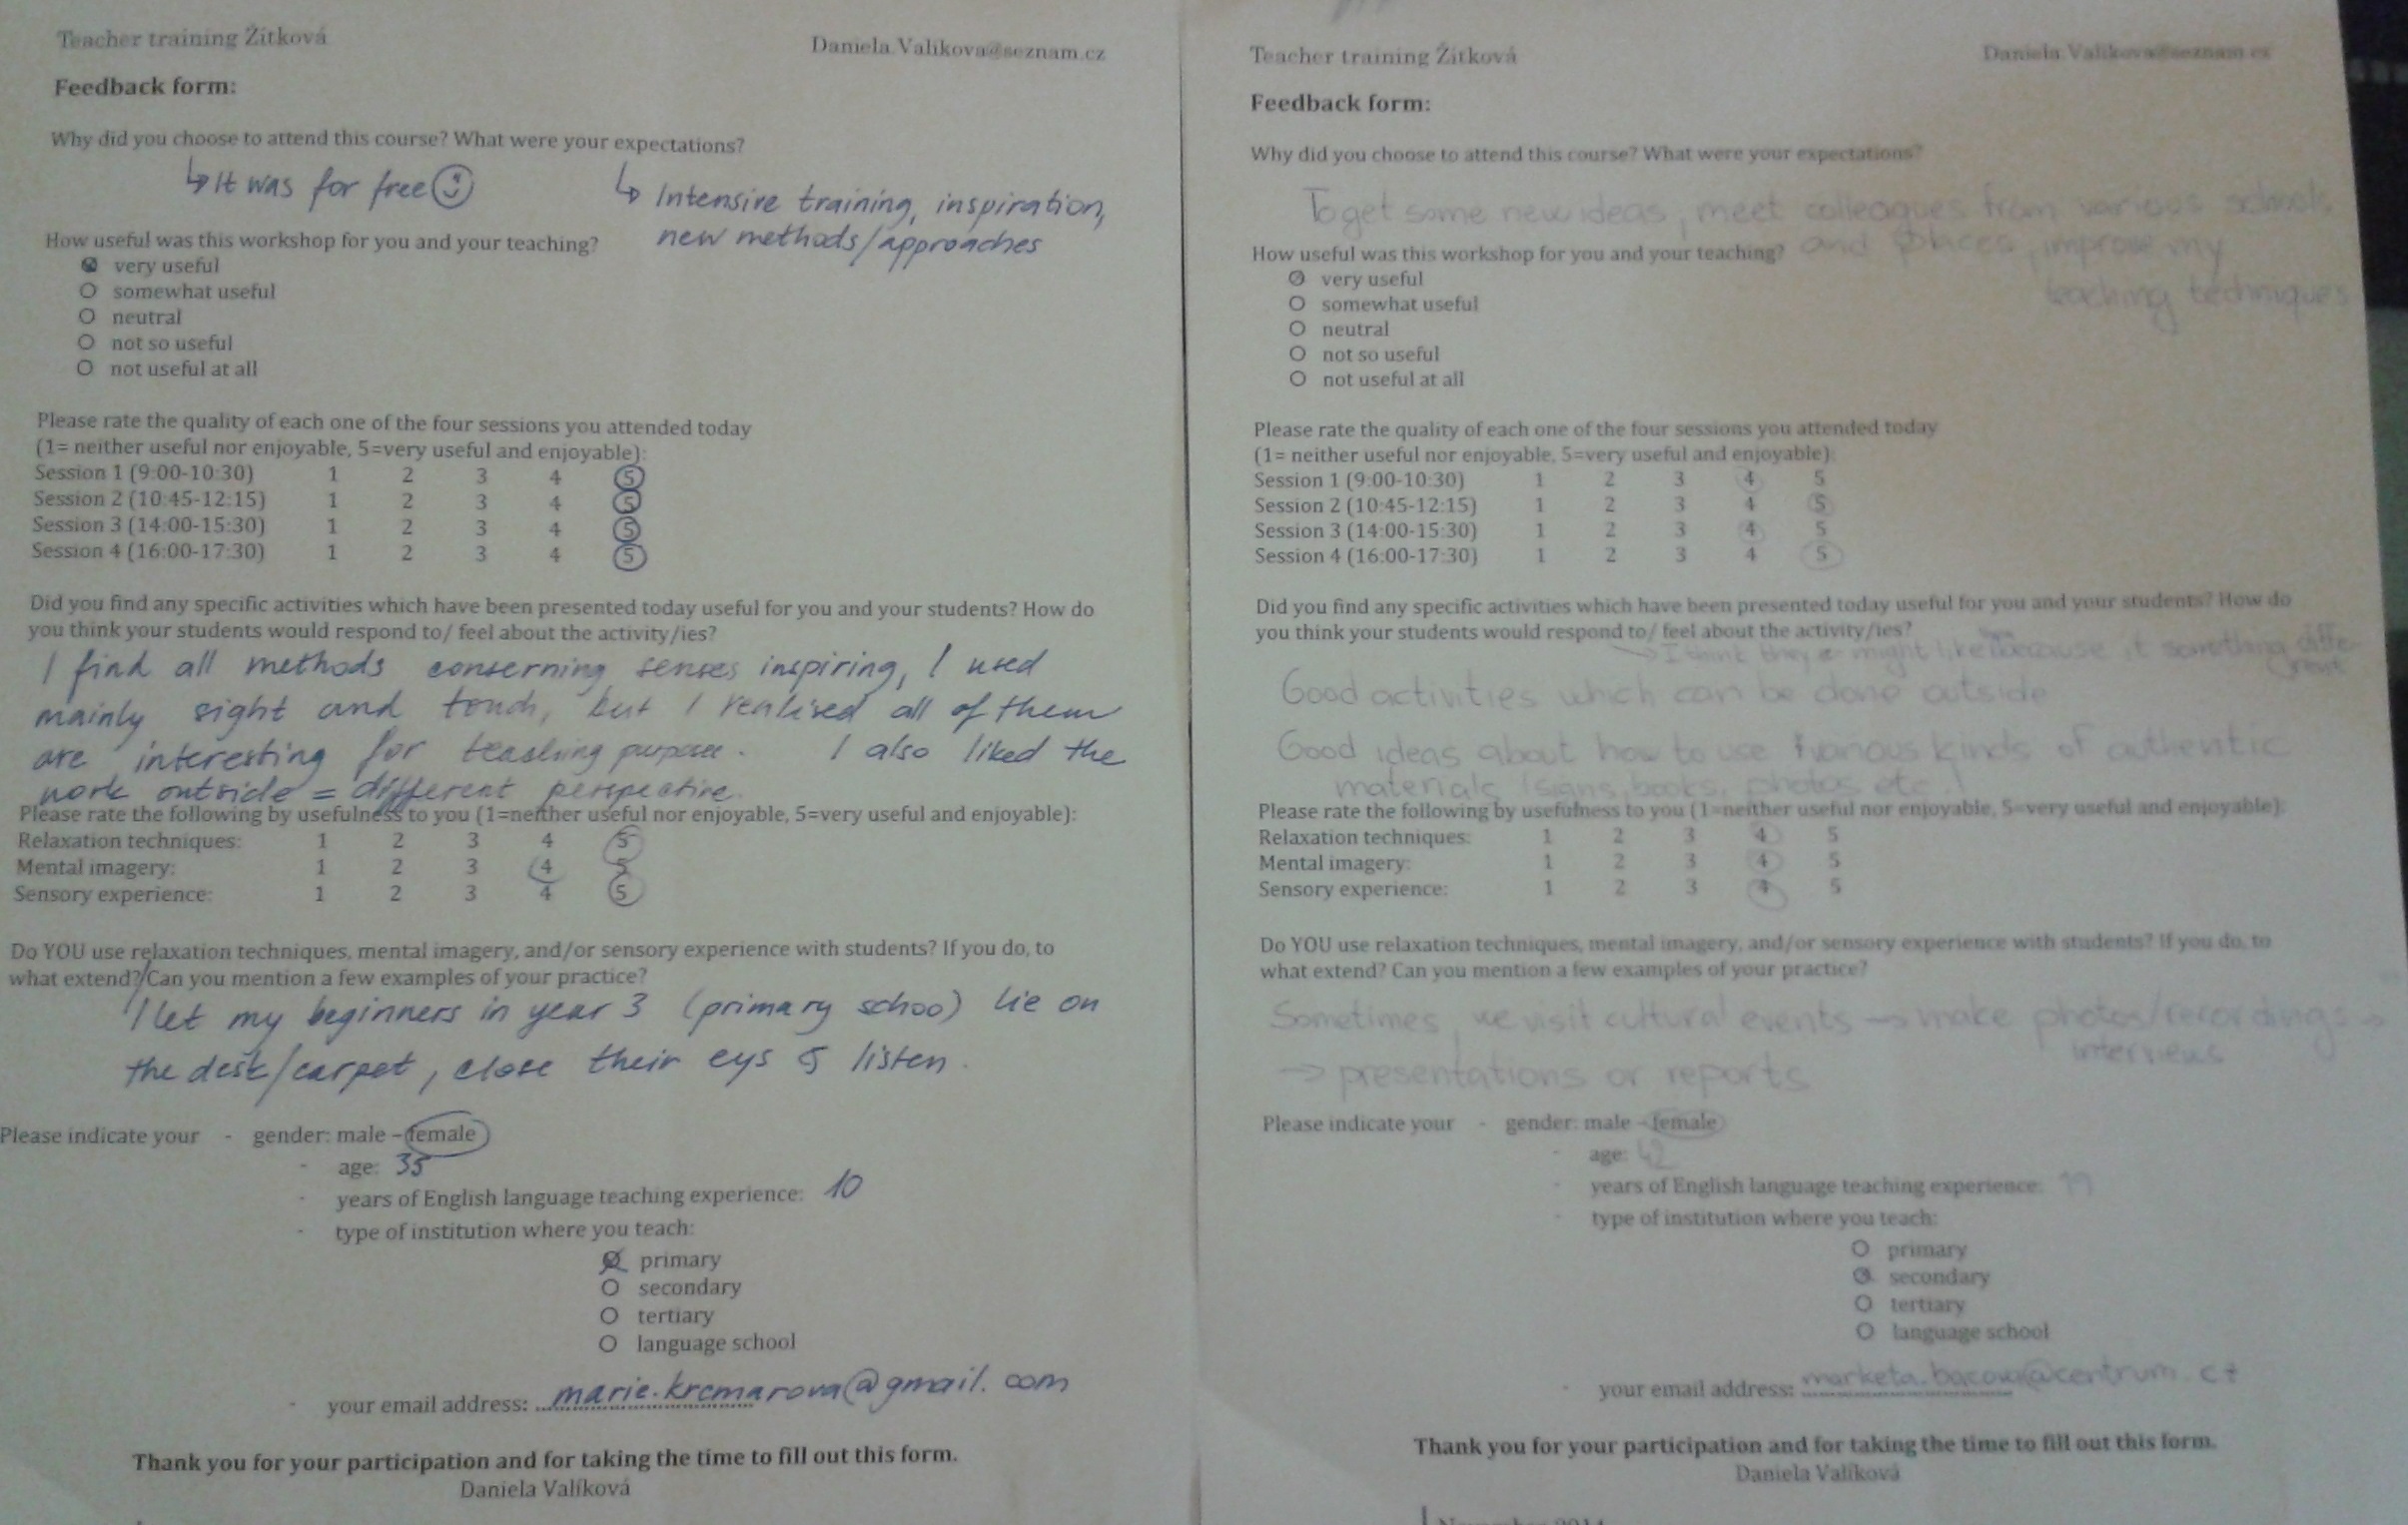 Teacher training Žítková
Daniela.Valikova@seznam.cz
Feedback form:
Why did you choose to attend this course? What were your expectations?
↳ It was for free ☺
↳ Intensive training, inspiration,
new methods/approaches
How useful was this workshop for you and your teaching?
very useful
somewhat useful
neutral
not so useful
not useful at all
Please rate the quality of each one of the four sessions you attended today
(1= neither useful nor enjoyable, 5=very useful and enjoyable):
Session 1 (9:00-10:30) 1 2 3 4 5
Session 2 (10:45-12:15) 1 2 3 4 5
Session 3 (14:00-15:30) 1 2 3 4 5
Session 4 (16:00-17:30) 1 2 3 4 5
Did you find any specific activities which have been presented today useful for you and your students? How do
you think your students would respond to/ feel about the activity/ies?
I find all methods conserning senses inspiring, I used
mainly sight and touch, but I realised all of them
are interesting for teaching purpose. I also liked the
work outside = different perspective.
Please rate the following by usefulness to you (1=neither useful nor enjoyable, 5=very useful and enjoyable):
Relaxation techniques: 1 2 3 4 5
Mental imagery: 1 2 3 4 5
Sensory experience: 1 2 3 4 5
Do YOU use relaxation techniques, mental imagery, and/or sensory experience with students? If you do, to
what extend? Can you mention a few examples of your practice?
I let my beginners in year 3 (primary schoo) lie on
the desk/carpet, close their eys & listen.
Please indicate your - gender: male – female
- age: 35
- years of English language teaching experience: 10
- type of institution where you teach:
primary
secondary
tertiary
language school
- your email address: marie.krcmarova@gmail.com
Thank you for your participation and for taking the time to fill out this form.
Daniela Valíková
Teacher training Žítková
Daniela.Valikova@seznam.cz
Feedback form:
Why did you choose to attend this course? What were your expectations?
To get some new ideas, meet colleagues from various schools
and places, improve my
teaching techniques
How useful was this workshop for you and your teaching?
very useful
somewhat useful
neutral
not so useful
not useful at all
Please rate the quality of each one of the four sessions you attended today
(1= neither useful nor enjoyable, 5=very useful and enjoyable):
Session 1 (9:00-10:30) 1 2 3 4 5
Session 2 (10:45-12:15) 1 2 3 4 5
Session 3 (14:00-15:30) 1 2 3 4 5
Session 4 (16:00-17:30) 1 2 3 4 5
Did you find any specific activities which have been presented today useful for you and your students? How do
you think your students would respond to/ feel about the activity/ies?
→ I think they might like because it something diffe-
rent
Good activities which can be done outside
Good ideas about how to use various kinds of authentic
materials (signs, books, photos etc.)
Please rate the following by usefulness to you (1=neither useful nor enjoyable, 5=very useful and enjoyable):
Relaxation techniques: 1 2 3 4 5
Mental imagery: 1 2 3 4 5
Sensory experience: 1 2 3 4 5
Do YOU use relaxation techniques, mental imagery, and/or sensory experience with students? If you do, to
what extend? Can you mention a few examples of your practice?
Sometimes, we visit cultural events → make photos/recordings →
interviews
→ presentations or reports
Please indicate your - gender: male – female
- age: 42
- years of English language teaching experience: 19
- type of institution where you teach:
primary
secondary
tertiary
language school
- your email address: marketa.bacova@centrum.cz
Thank you for your participation and for taking the time to fill out this form.
Daniela Valíková